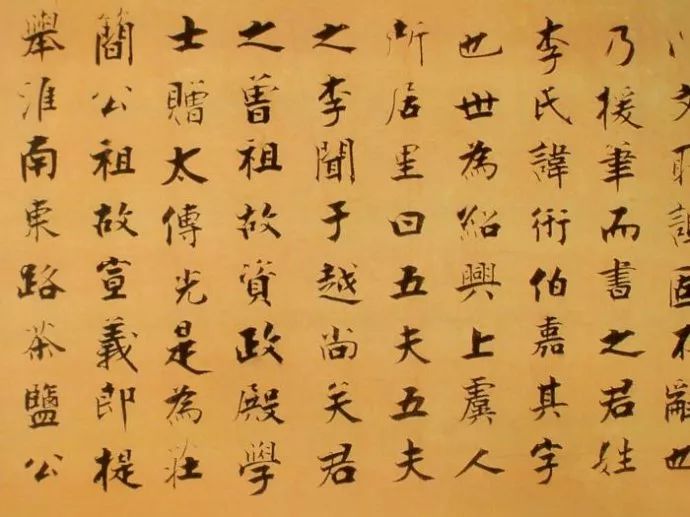 文固不辭也
乃援筆而書之君姓
李氏諱伯嘉其字
也世為紹興上虞人
所居里曰五夫五夫
之李聞于越尚矣君
之曾祖故資政殿學
士贈太傅光是為莊
簡公祖故宣義郎提
舉淮南東路茶鹽公